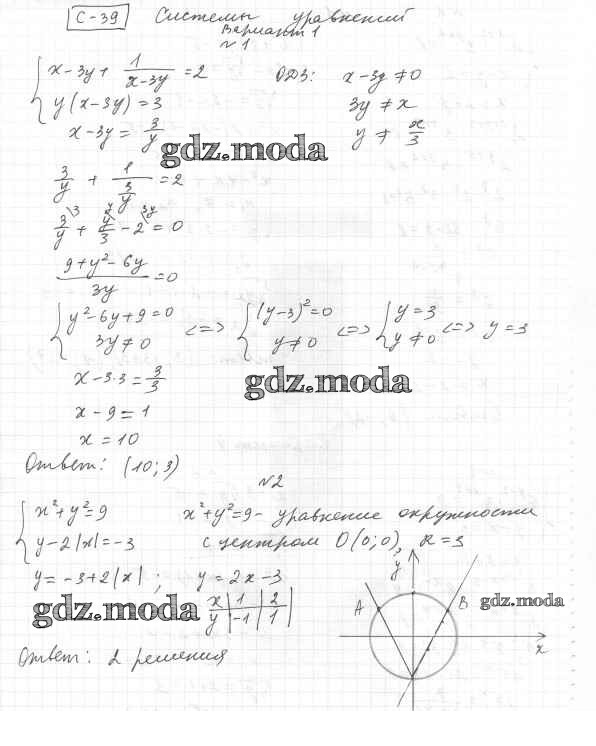 С-39 Системы уравнений
Вариант 1
№1
{ x-3y + 1/(x-3y) = 2
y(x-3y) = 3
ОДЗ: x-3y ≠ 0
3y ≠ x
y ≠ x/3
x-3y = 3/y
gdz.moda
3/y + 1/(3/y) = 2
3/y + y/3 - 2 = 0
(9+y²-6y)/3y = 0
{ y²-6y+9=0
3y ≠ 0
<=> { (y-3)²=0
y ≠ 0
<=> { y=3
y ≠ 0
<=> y=3
x-3·3 = 3/3
gdz.moda
x-9 = 1
x = 10
Ответ: (10; 3)
№2
{ x²+y²=9
y-2|x|=-3
x²+y²=9 - уравнение окружности
с центром O(0;0), R=3
y = -3+2|x| ; y = 2x-3
gdz.moda
x | 1 | 2
y | -1 | 1
Ответ: 2 решения
y
A
B
gdz.moda
x